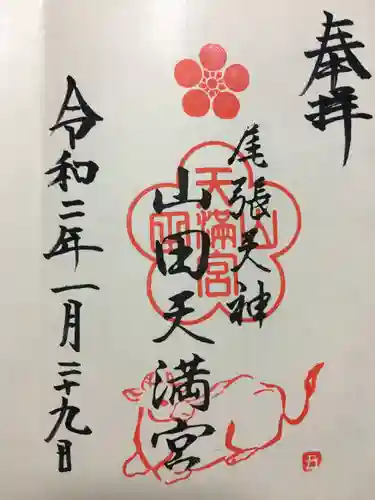 奉拝
尾張天神
山田天満宮
山田
天満宮
令和二年一月二十九日